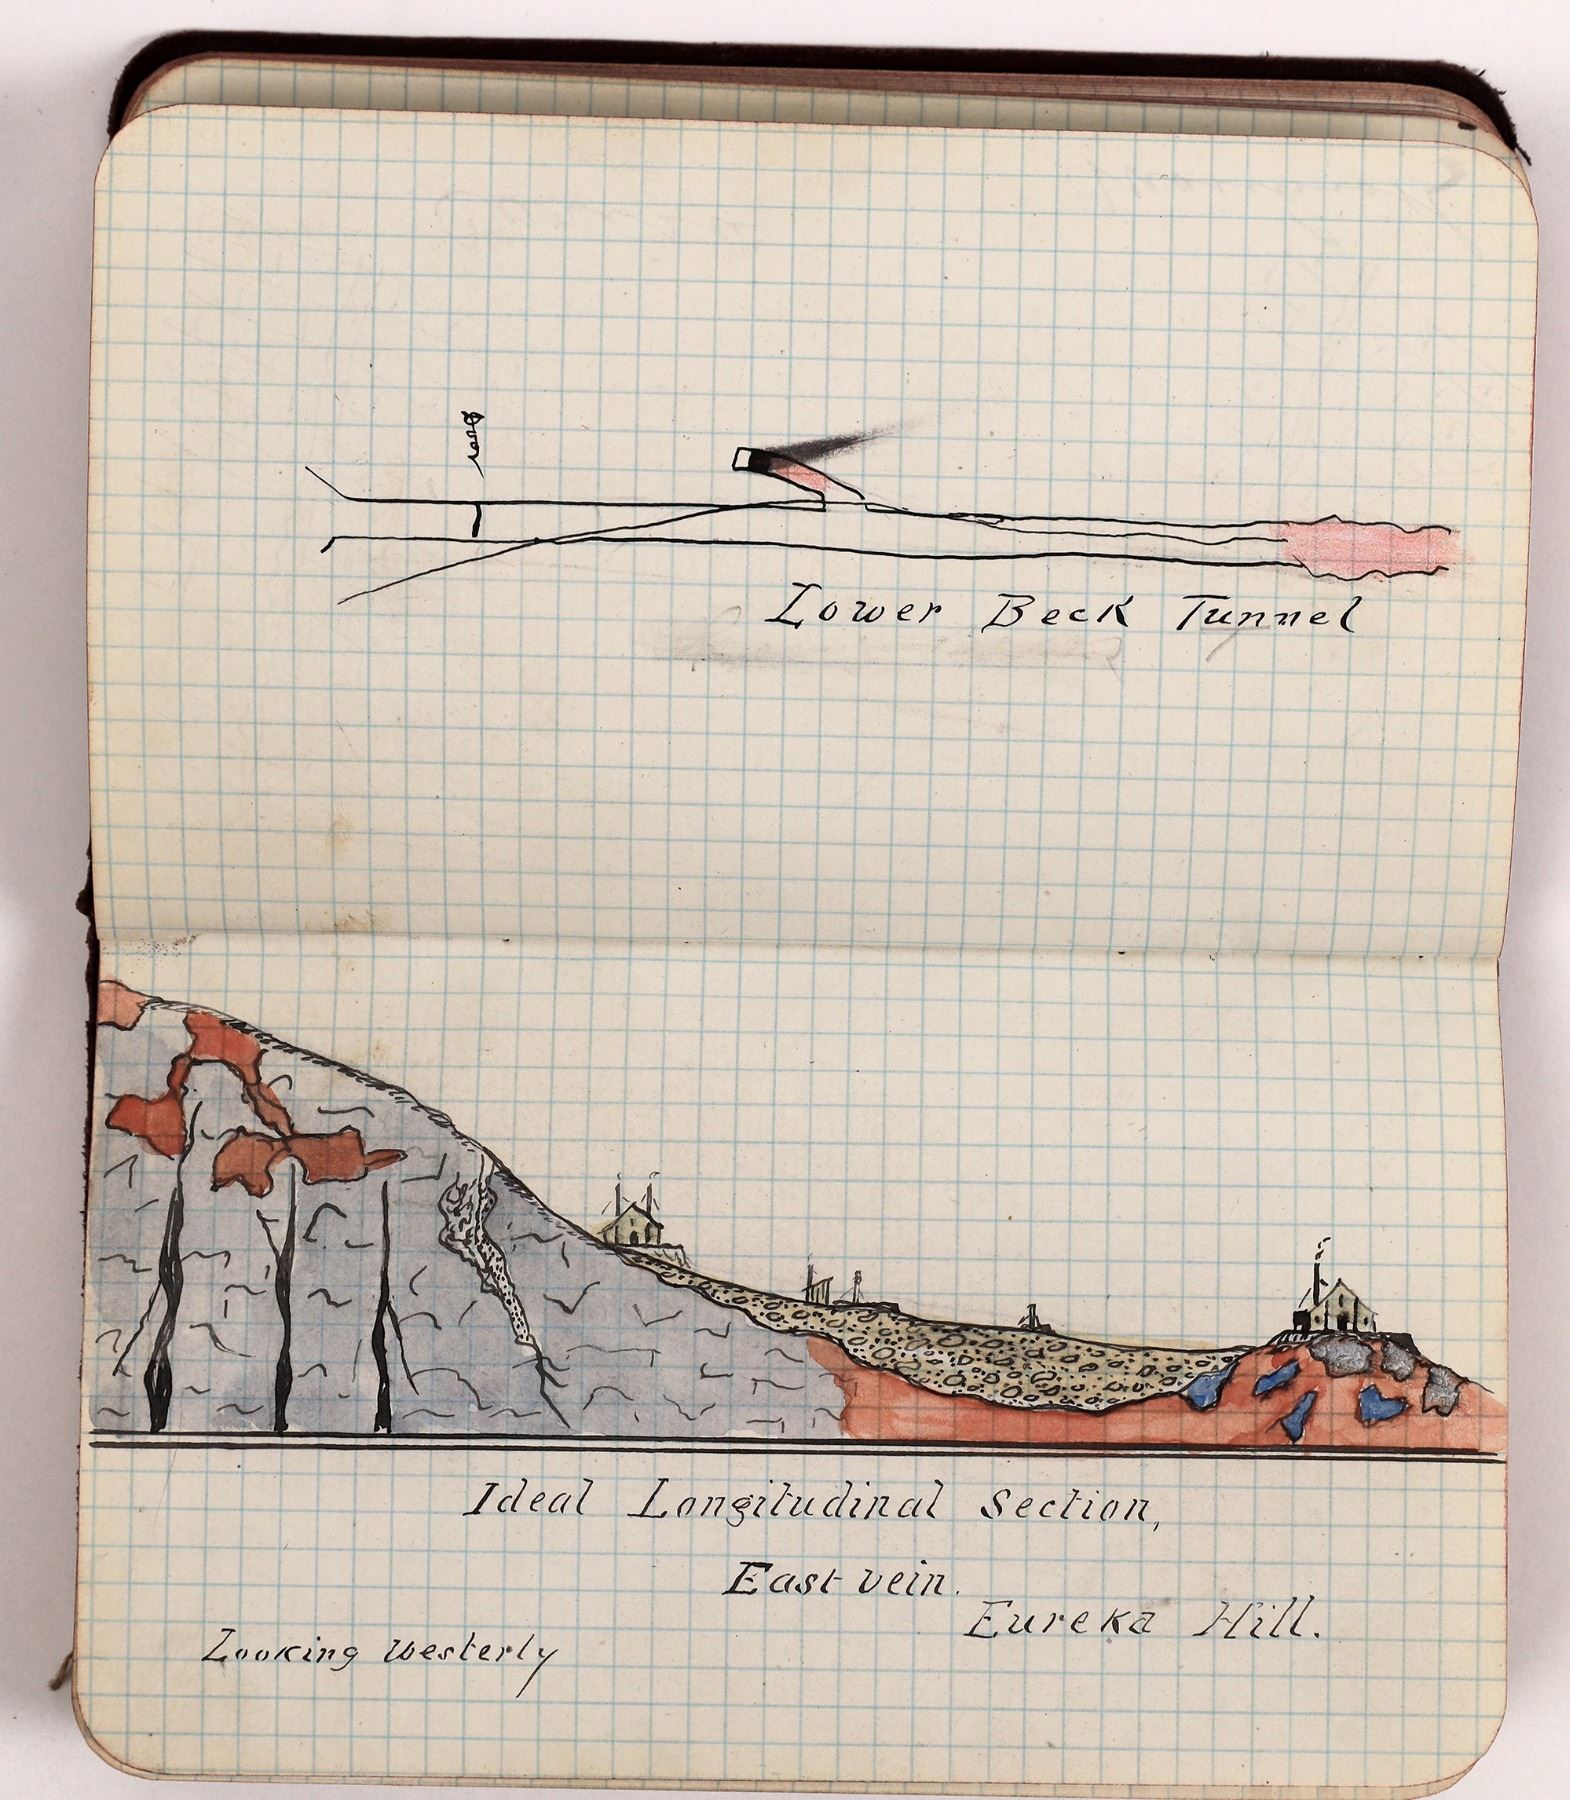 Lower Beck Tunnel
Ideal Longitudinal Section,
East vein.
Eureka Hill.
Looking Westerly